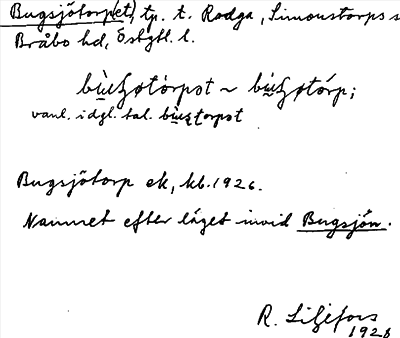 Bugsjötorp(et), tp. t. Rodga, Simonstorps s
Bråbo hd, Östgtl. l.
bùꞔʒøtórpət ~ bùꞔʒøtórp;
vanl. i dgl. tal. bùꞔtorpət
Bugsjötorp ek, kb. 1926.
Namnet efter läget invid Bugsjön.
R. Liljefors
1928